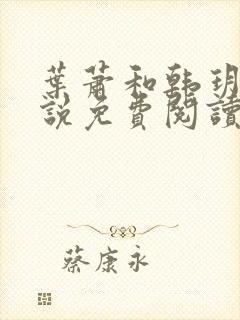 葉蕭和韓玥
說免費閱讀
蔡康永